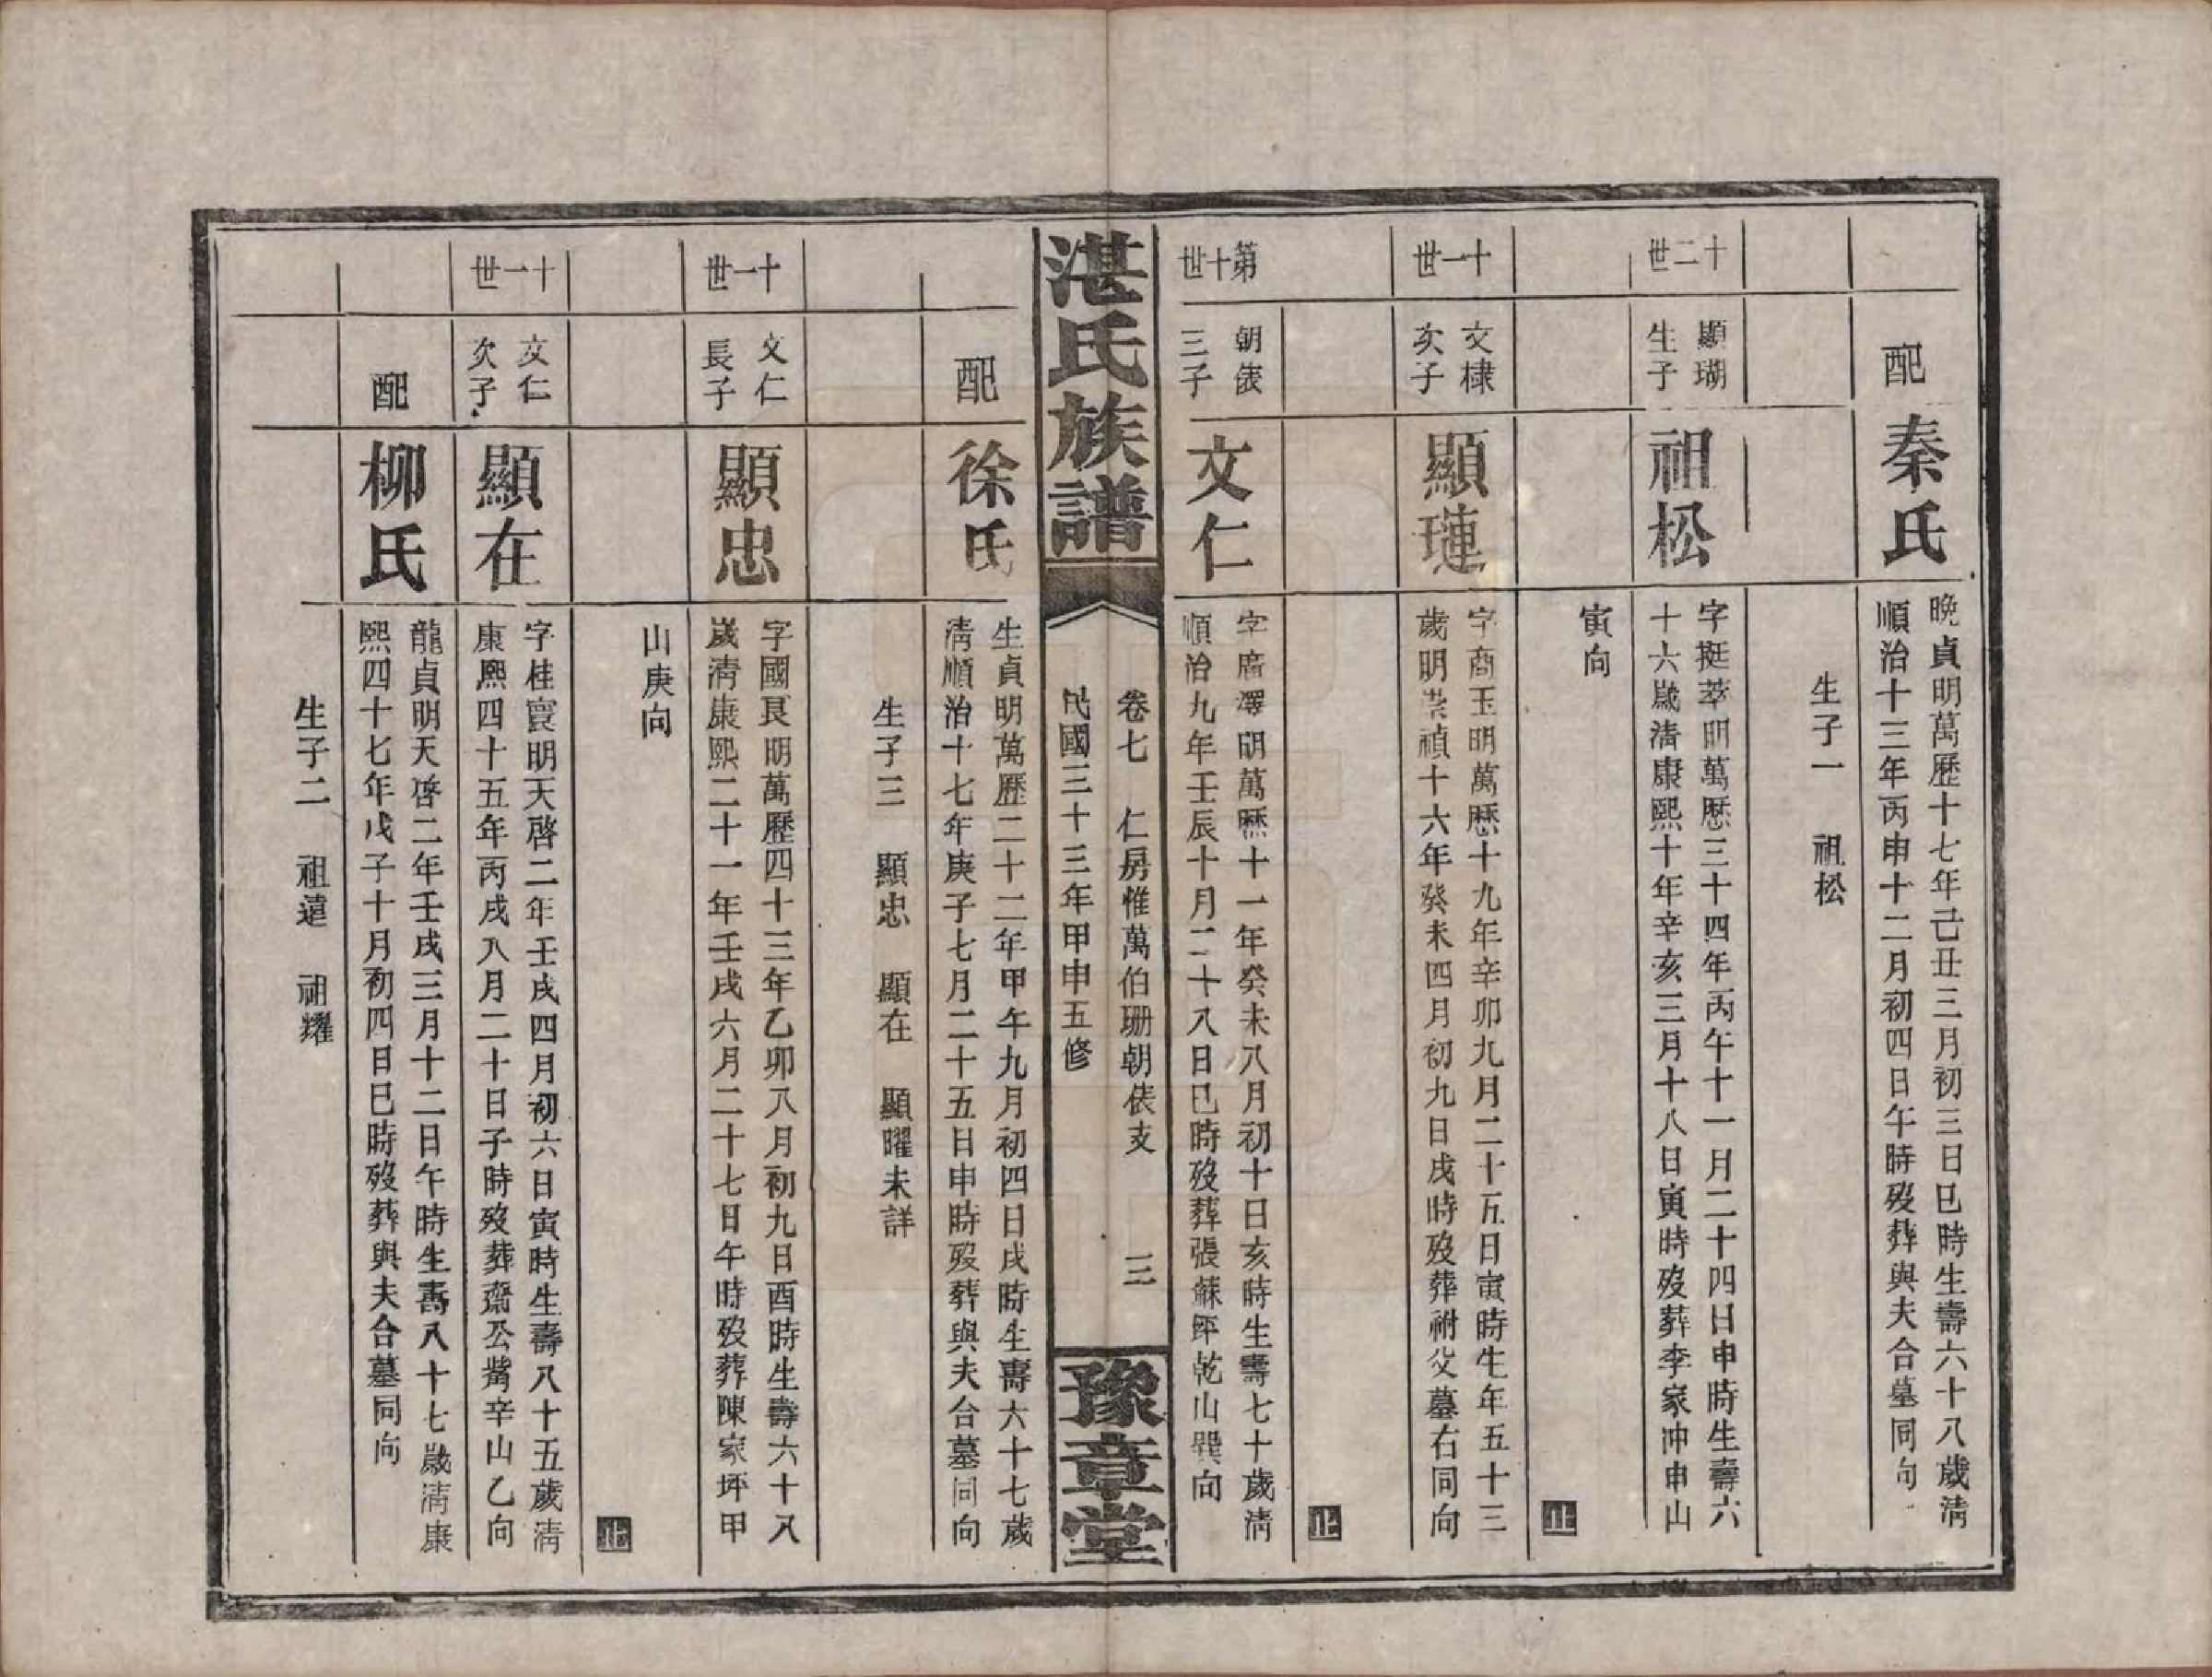 配
秦氏
晚貞明萬歷十七年己丑三月初三日巳時生壽六十八歲清
順治十三年丙申十二月初四日午時歿葬與夫合墓同向
生子一　祖松
十二世
顯瑚
生子
祖松
字挺萃明萬歷三十四年丙午十一月二十四日申時生壽六
十六歲清康熙十年辛亥三月十八日寅時歿葬李家冲申山
寅向
止
十一世
文棣
次子
顯璉
字商玉明萬歷十九年辛卯九月二十五日寅時生年五十三
歲明崇禎十六年癸未四月初九日戌時歿葬祔父墓右同向
止
第十世
朝俵
三子
文仁
字廣澤明萬歷十一年癸未八月初十日亥時生壽七十歲清
順治九年壬辰十月二十八日巳時歿葬張蘇坪乾山巽向
湛氏族譜
卷七　仁房惟萬伯珊朝俵支　三
民國三十三年甲申五修
豫章堂
配
徐氏
生貞明萬歷二十二年甲午九月初四日戌時生壽六十七歲
清順治十七年庚子七月二十五日申時歿葬與夫合墓同向
生子三　顯忠　顯在　顯曜未詳
十一世
文仁
長子
顯忠
字國良明萬歷四十三年乙卯八月初九日酉時生壽六十八
歲清康熙二十一年壬戌六月二十七日午時歿葬陳家坪甲
山庚向
止
十一世
文仁
次子
顯在
字桂寰明天啓二年壬戌四月初六日寅時生壽八十五歲清
康熙四十五年丙戌八月二十日子時歿葬齋公嘴辛山乙向
配
柳氏
龍貞明天啓二年壬戌三月十二日午時生壽八十七歲清康
熙四十七年戊子十月初四日巳時歿葬與夫合墓同向
生子二　祖遠　祖耀